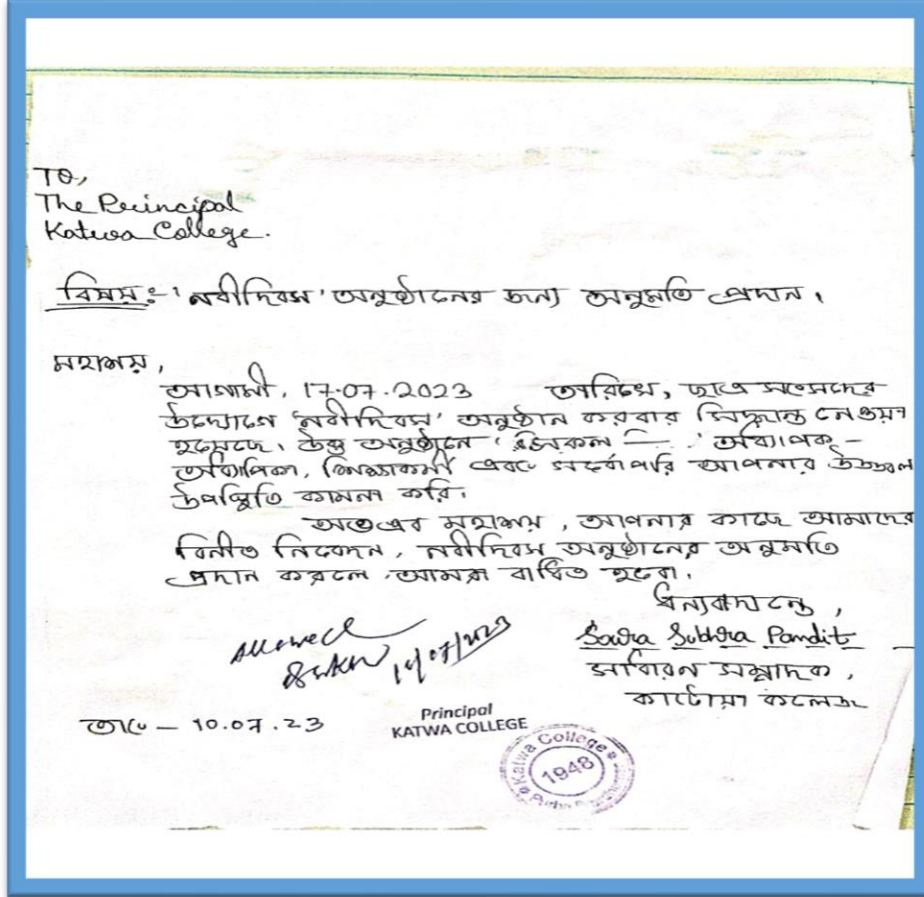 To,
The Principal
Katwa College.
বিষয়ঃ- 'নবীদিবস' অনুষ্ঠানের জন্য অনুমতি প্রদান।
মহাশয়,
আগামী, 17.07.2023 তারিখে, ছাত্র সংসদের
উদ্যোগে 'নবীদিবস' অনুষ্ঠান করবার সিদ্ধান্ত নেওয়া
হয়েছে। উক্ত অনুষ্ঠানে সকল অধ্যাপক-
অধ্যাপিকা, শিক্ষাকর্মী এবং সর্বোপরি আপনার উজ্জ্বল
উপস্থিতি কামনা করি।
অতএব মহাশয়, আপনার কাছে আমাদের
বিনীত নিবেদন, নবীদিবস অনুষ্ঠানের অনুমতি
প্রদান করলে আমরা বাধিত হবো।
ধন্যবাদান্তে,
Allowed
Soura Subhra Pandit
সাধারন সম্পাদক,
কাটোয়া কলেজ
তাং - 10.07.23
Principal
KATWA COLLEGE
Katwa College
1948